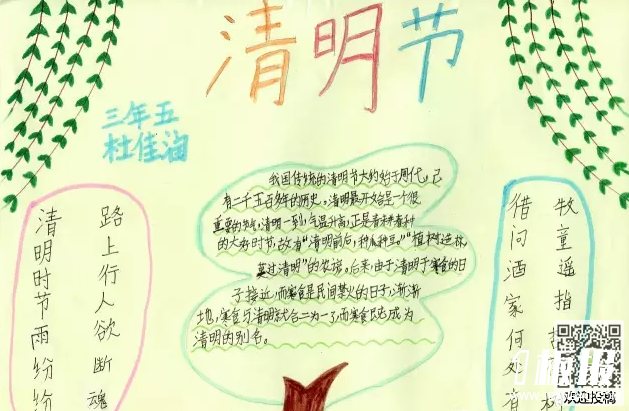 清明节
三年五
杜佳涵
我国传统的清明节大约始于周代,已
有二千五百多年的历史。清明最开始是一个很
重要的节气,清明一到,气温升高,正是春耕春种
的大好时节,故有“清明前后,种瓜种豆。”“植树造林,
莫过清明”的农谚。后来,由于清明于寒食的日
子接近,而寒食是民间禁火的日子,渐渐
地,寒食与清明就合二为一了,而寒食也成为
清明的别名。
清明时节雨纷纷
路上行人欲断魂
借问酒家何处有
牧童遥指
欢迎投稿